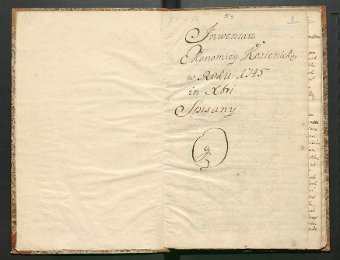 1
Inwentarz
Ekonomiey Kozienickiey
w Roku 1745
in Xbri
Spisany